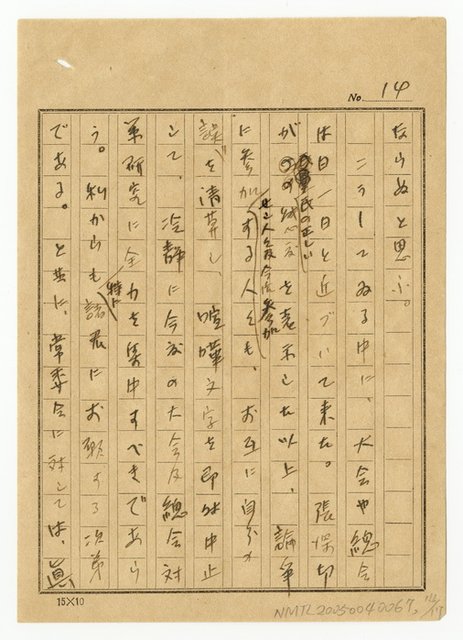 No. 14
ならぬと思ふ。
こうしてゐる中に、大会や總会
は日一日と近づいて来た。張深切
氏の正しい
が を表示した以上、論爭
に参加する人々も、お互に自分の
誤を清算し、喧嘩文字を即時中止
して、冷靜に今度の大会及總会対
策研究に全力を集中すべきであら
う。私からも諸君にお願する次第
特に
である。と共に、常委会に対しては、眞
15×10
NMTL20050040067,